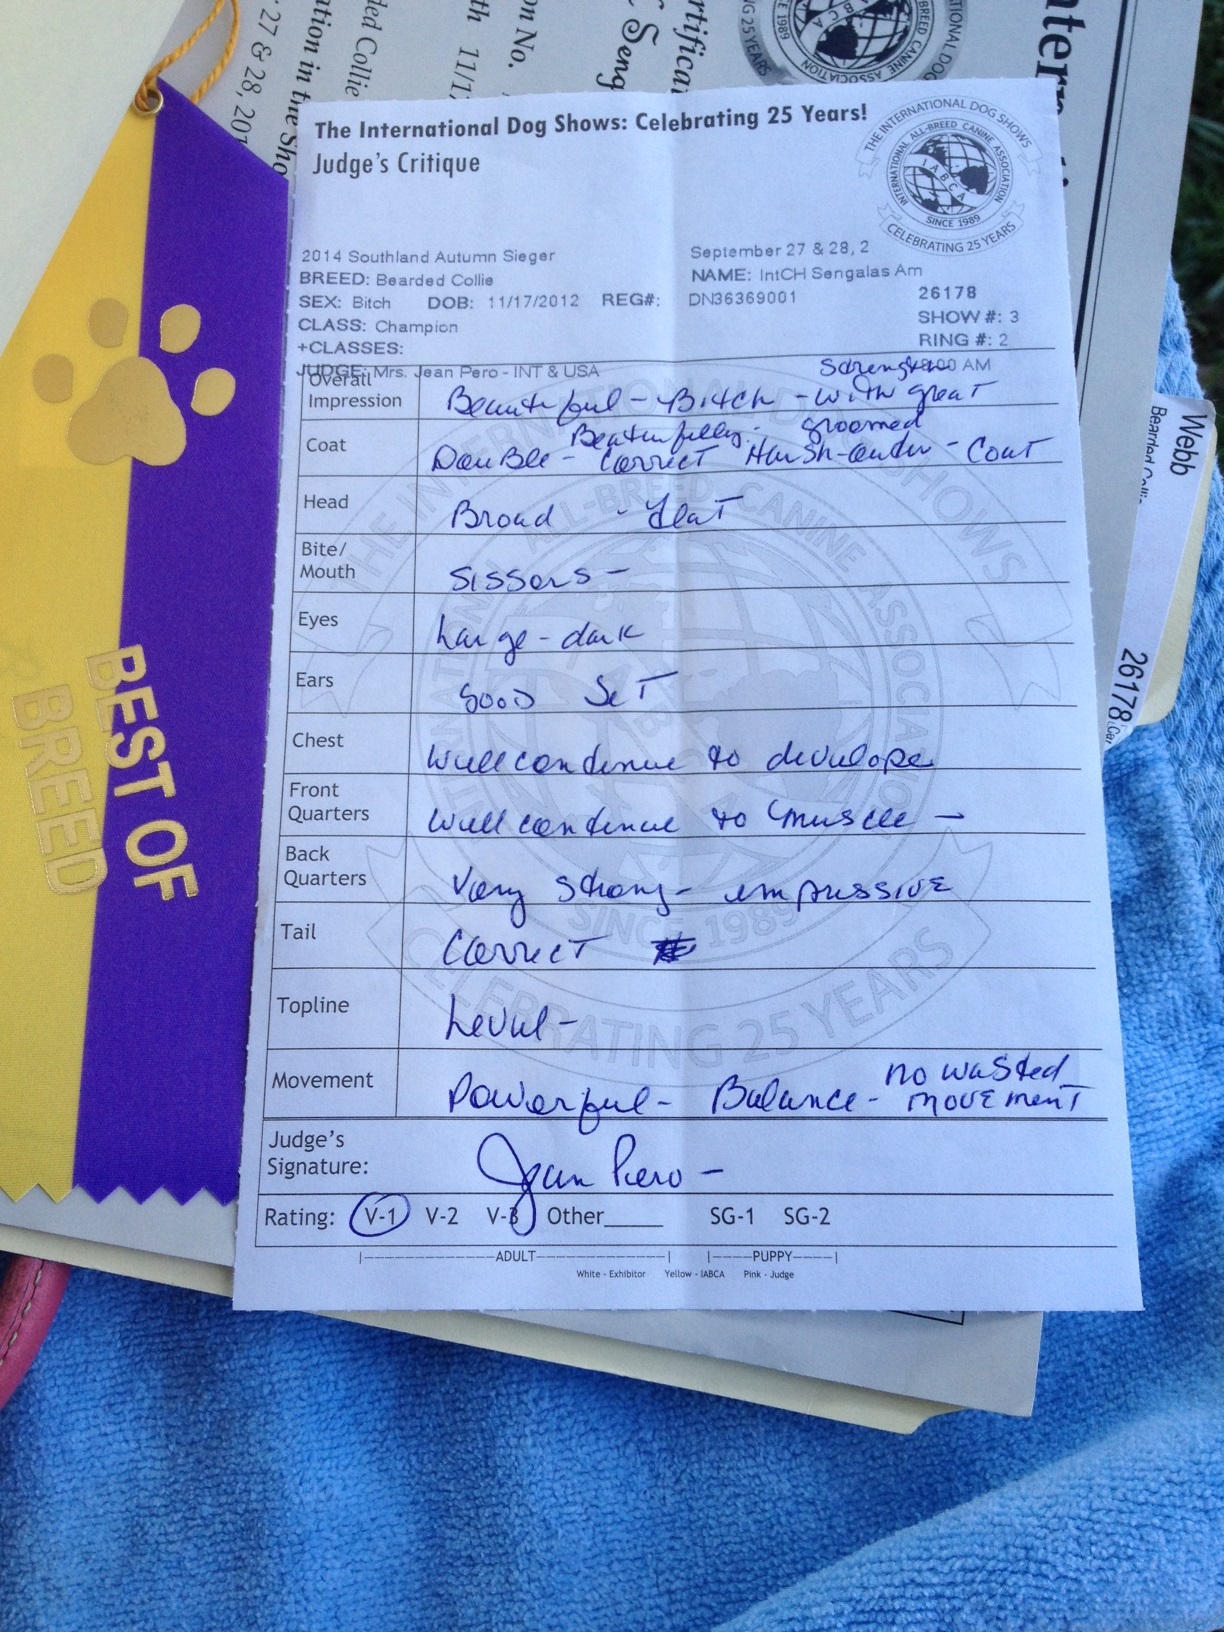 The International Dog Shows: Celebrating 25 Years!
Judge's Critique
THE INTERNATIONAL DOG SHOWS
INTERNATIONAL ALL-BREED CANINE ASSOCIATION
IABCA
SINCE 1989
CELEBRATING 25 YEARS
2014 Southland Autumn Sieger September 27 & 28, 2
BREED: Bearded Collie NAME: IntCH Sengalas Am
SEX: Bitch DOB: 11/17/2012 REG#: DN36369001 26178
CLASS: Champion SHOW #: 3
+CLASSES: RING #: 2
JUDGE: Mrs. Jean Pero - INT & USA :00 AM
Overall Impression Beautiful - Bitch - with great strength
Coat Double - correct Harsh-outer - Coat
Beatufully - groomed
Head Broad - flat
Bite/ Mouth Sissors -
Eyes Large - dark
Ears Good Set
Chest Will continue to develope
Front Quarters Will continue to muscle -
Back Quarters Very strong - impressive
Tail Correct
Topline Level -
Movement Powerful - Balance - no wasted movement
Judge's Signature: Jean Pero -
Rating: V-1 V-2 V-3 Other_____ SG-1 SG-2
|--------ADULT--------| |----PUPPY----|
White - Exhibitor Yellow - IABCA Pink - Judge
BEST OF
BREED
Webb
Bearded Collie
26178